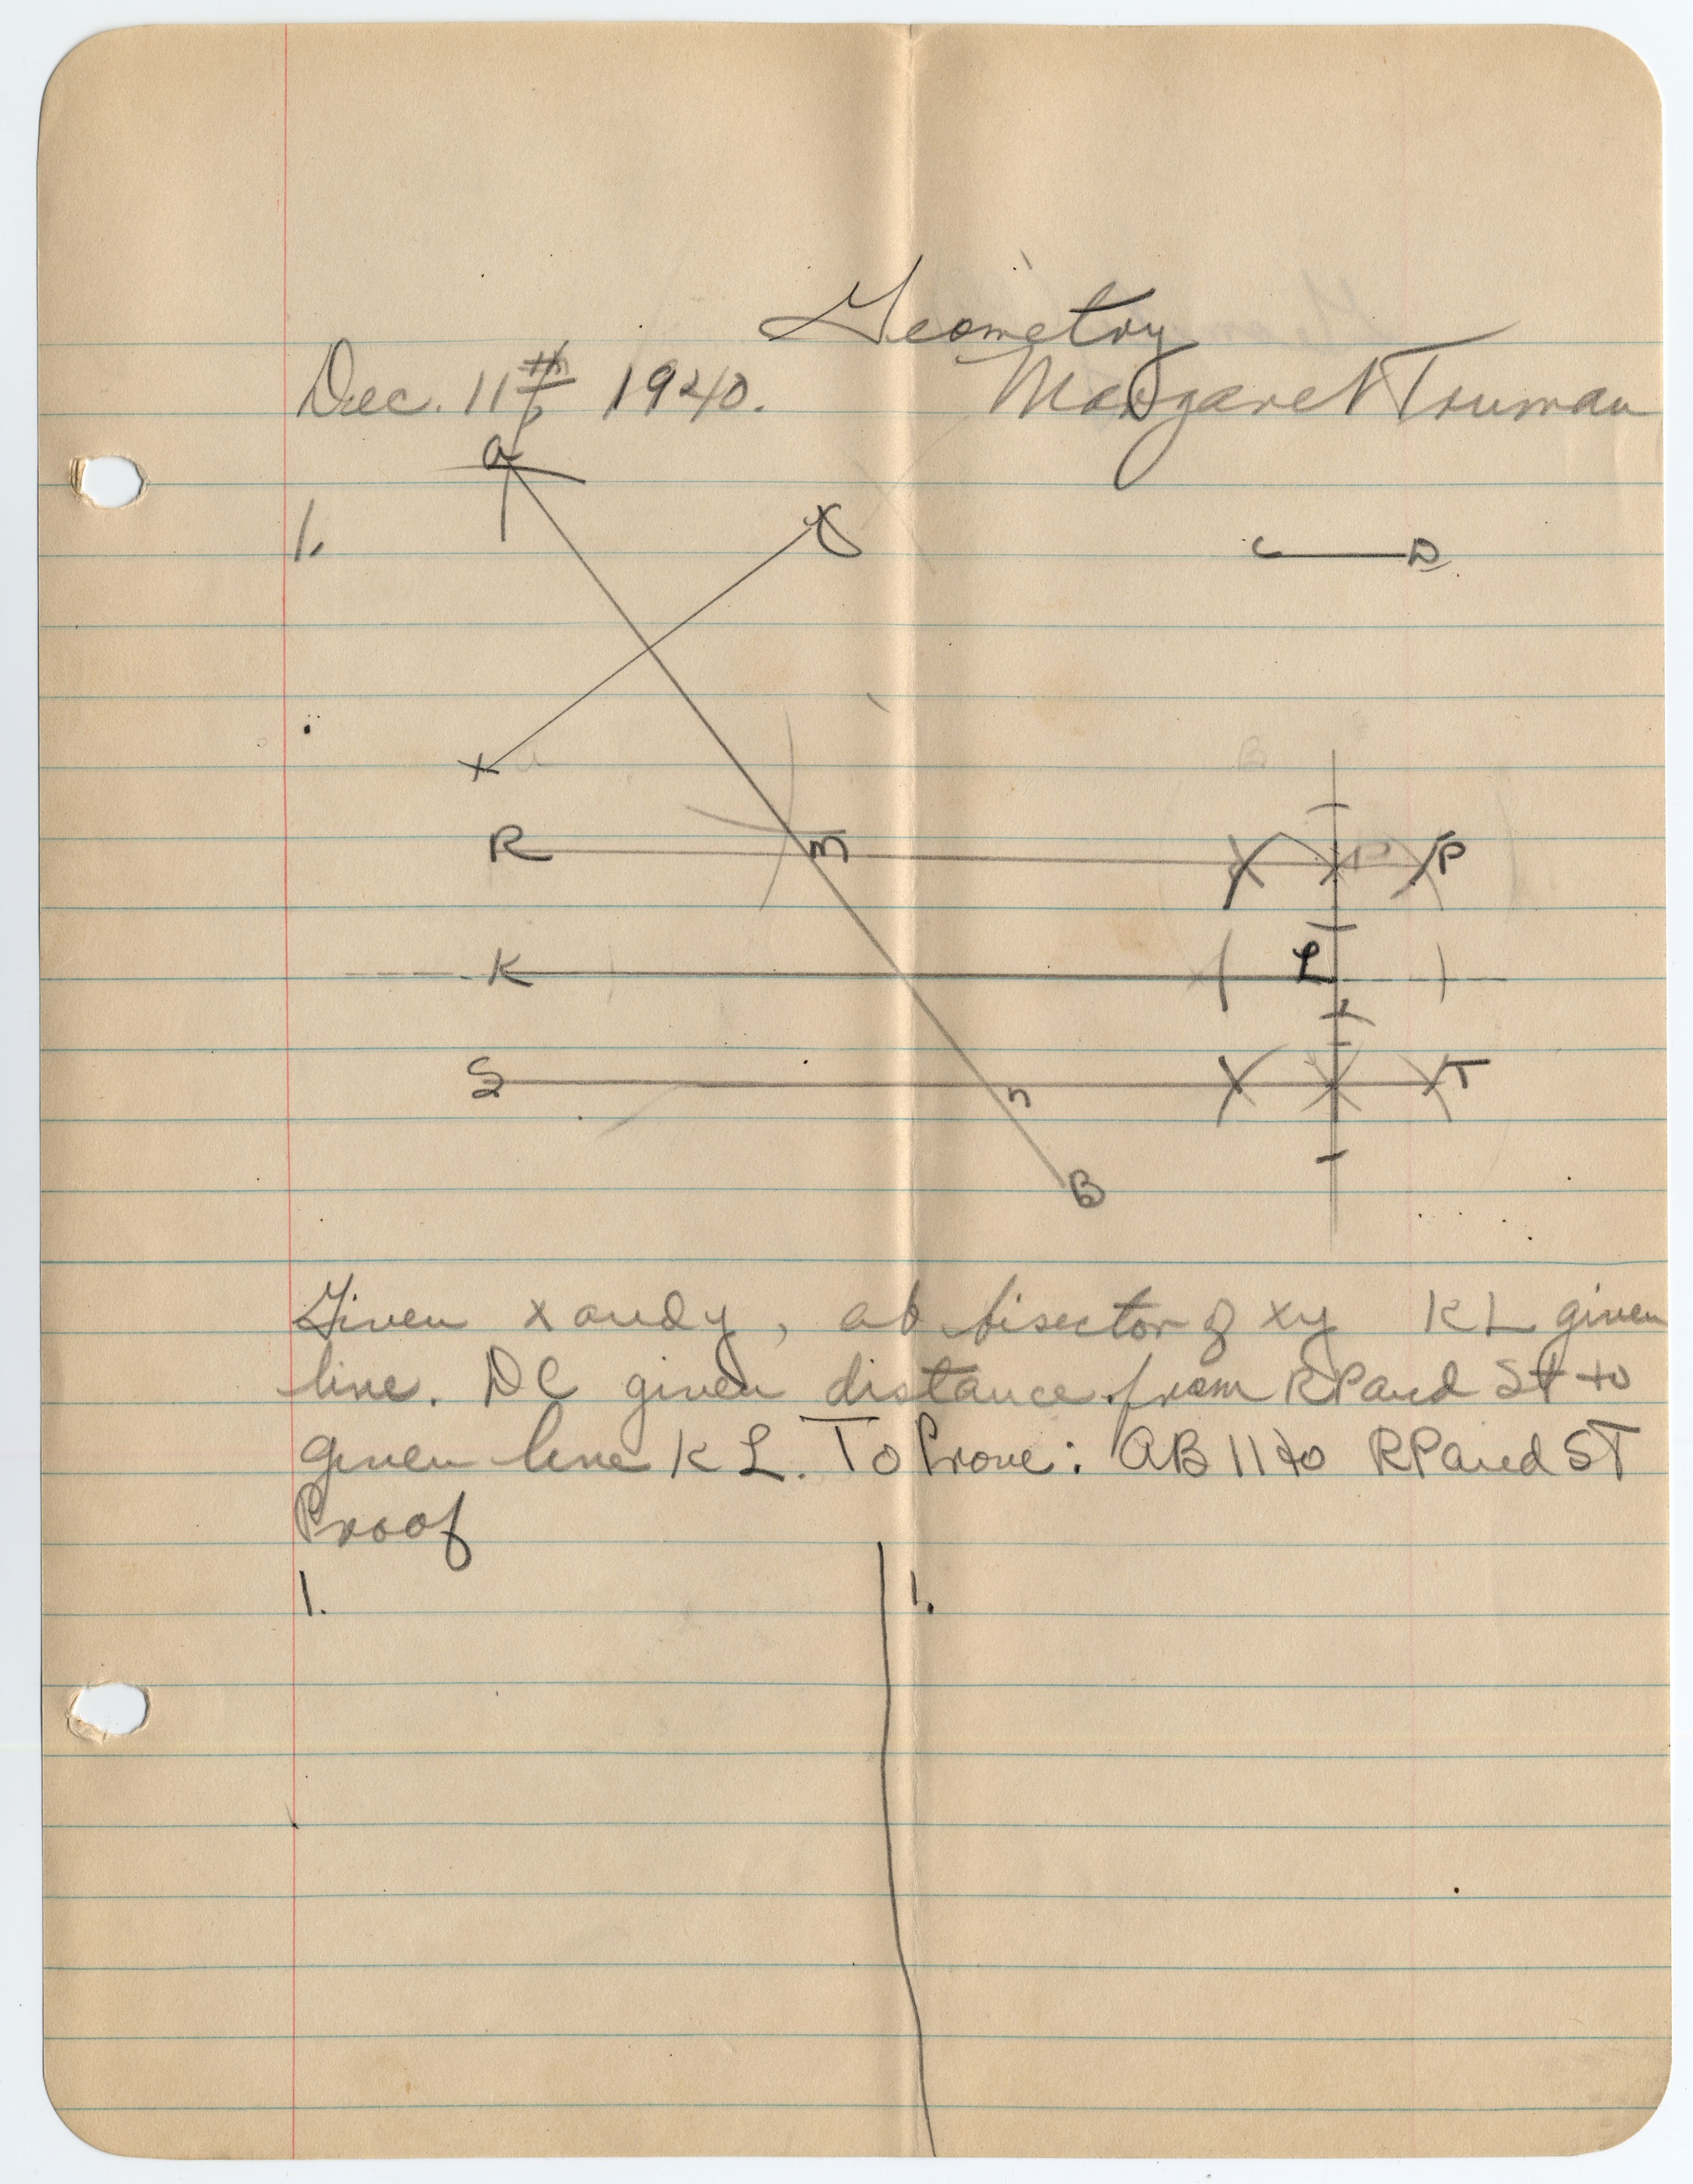 Geometry
Dec. 11th 1940. Margaret Truman
a
1. y C D
x
R m P
K L
S n T
B
Given x and y, ab bisector of xy KL given
line. DC given distance from RP and St to
given line KL. To Prove: AB 11 to RP and ST
Proof
1. 1.